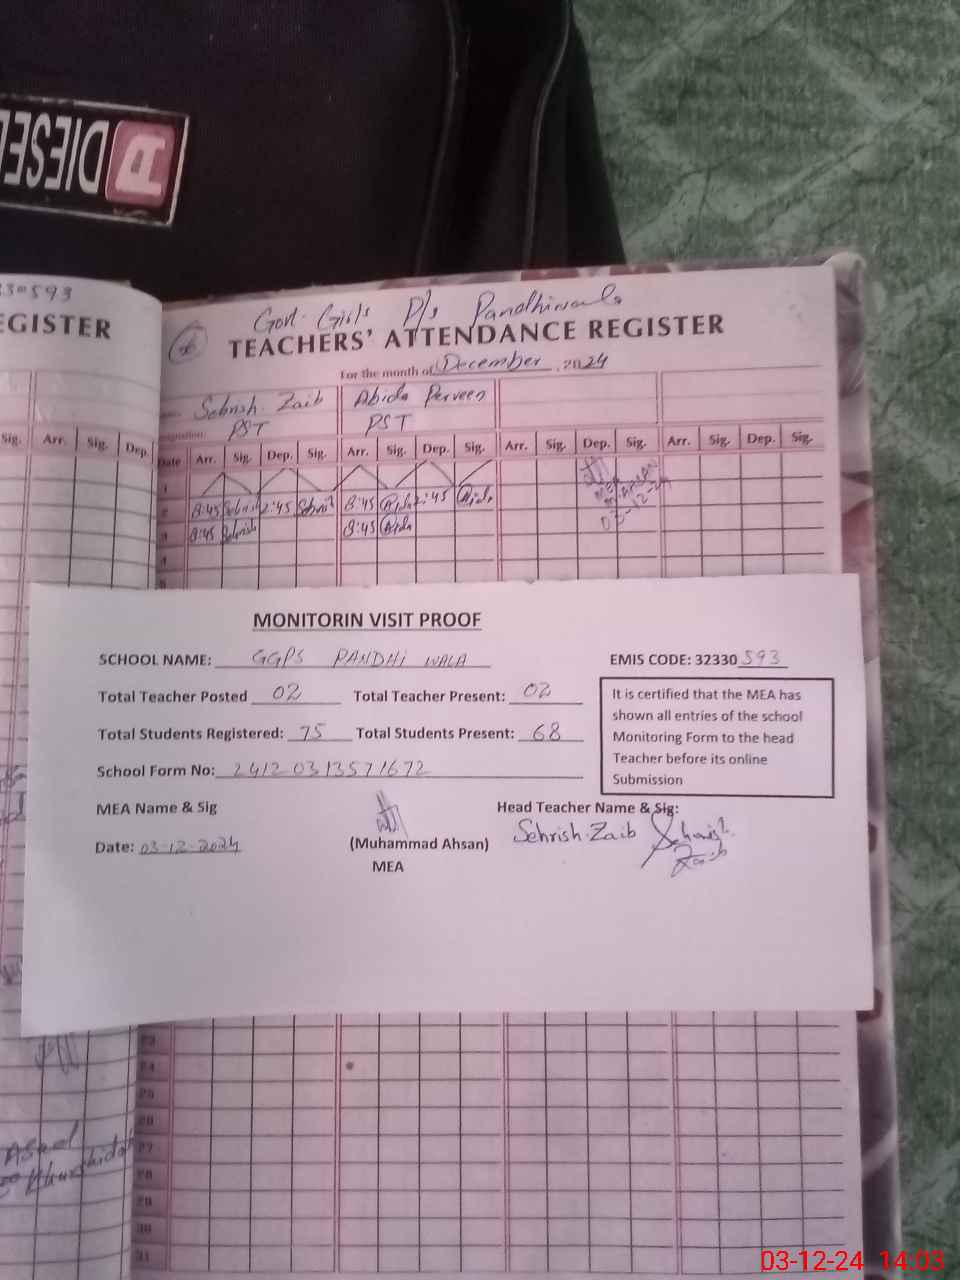 DIESEL
30593
EGISTER
Govt. Girls P/s Pandhiwala
TEACHERS' ATTENDANCE REGISTER
For the month of December, 2024
Sehrish Zaib Abida Perveen
PST PST
Sig. Arr. Sig. Dep.
Date Arr. Sig. Dep. Sig. Arr. Sig. Dep. Sig. Arr. Sig. Dep. Sig. Arr. Sig. Dep. Sig.
1
2 8:45 Sehrish 2:45 Sehrish 8:45 Abida 2:45 Abida
3 8:45 Sehrish 8:45 Abida
4
MEA
M. AHSAN
03-12-24
MONITORIN VISIT PROOF
SCHOOL NAME: GGPS PANDHI WALA EMIS CODE: 32330593
Total Teacher Posted 02 Total Teacher Present: 02
Total Students Registered: 75 Total Students Present: 68
School Form No: 2412 0313571672
It is certified that the MEA has
shown all entries of the school
Monitoring Form to the head
Teacher before its online
Submission
MEA Name & Sig Head Teacher Name & Sig:
Sehrish Zaib Sehrish
Zaib
Date: 03-12-2024 (Muhammad Ahsan)
MEA
23
24
25
26
27
28
29
30
31
Asad
Khurshid
03-12-24 14:03